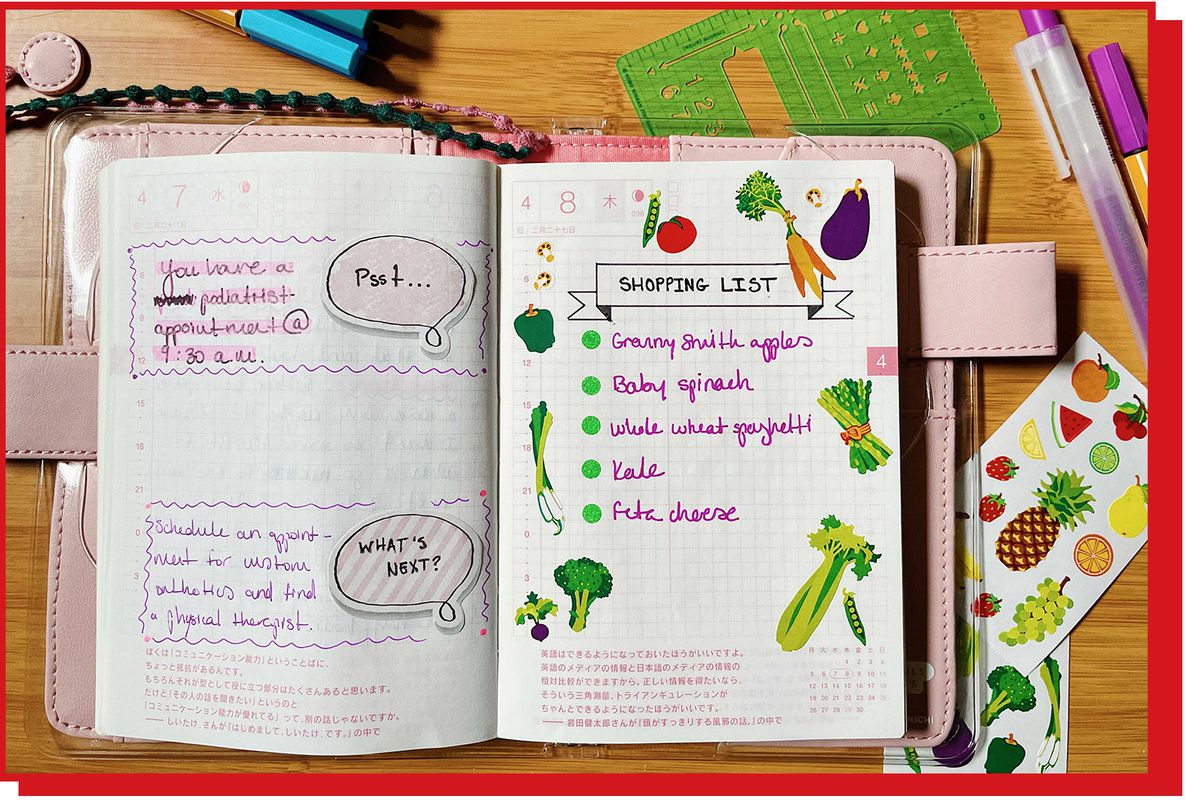 4 7 水
097
旧:二月二十六日
You have a
podiatrist
appointment @
9:30 a.m.
Psst...
6
9
12
15
18
21
0
3
Schedule an appoint-
ment for custom
orthotics and find
a physical therapist.
WHAT'S
NEXT?
ぼくは「コミュニケーション能力」ということばに、
ちょっと抵抗があるんです。
もちろんそれが型として役に立つ部分はたくさんあると思います。
だけど「その人の話を聞きたい」というのと
「コミュニケーション能力が優れてる」って、別の話じゃないですか。
── しいたけ.さんが『はじめまして、しいたけ.です。』の中で
4 8 木
098
旧:二月二十七日
SHOPPING LIST
Granny Smith apples
Baby spinach
Whole wheat spaghetti
Kale
Feta cheese
4
6
12
15
18
21
0
3
英語はできるようになっておいたほうがいいですよ。
英語のメディアの情報と日本語のメディアの情報の
相対比較ができますから。正しい情報を得たいなら、
そういう三角測量、トライアンギュレーションが
ちゃんとできるようになったほうがいいです。
── 岩田健太郎さんが『頭がすっきりする風邪の話。』の中で
月 火 水 木 金 土 日
1 2 3 4
5 6 7 8 9 10 11
12 13 14 15 16 17 18
19 20 21 22 23 24 25
26 27 28 29 30
NICHI